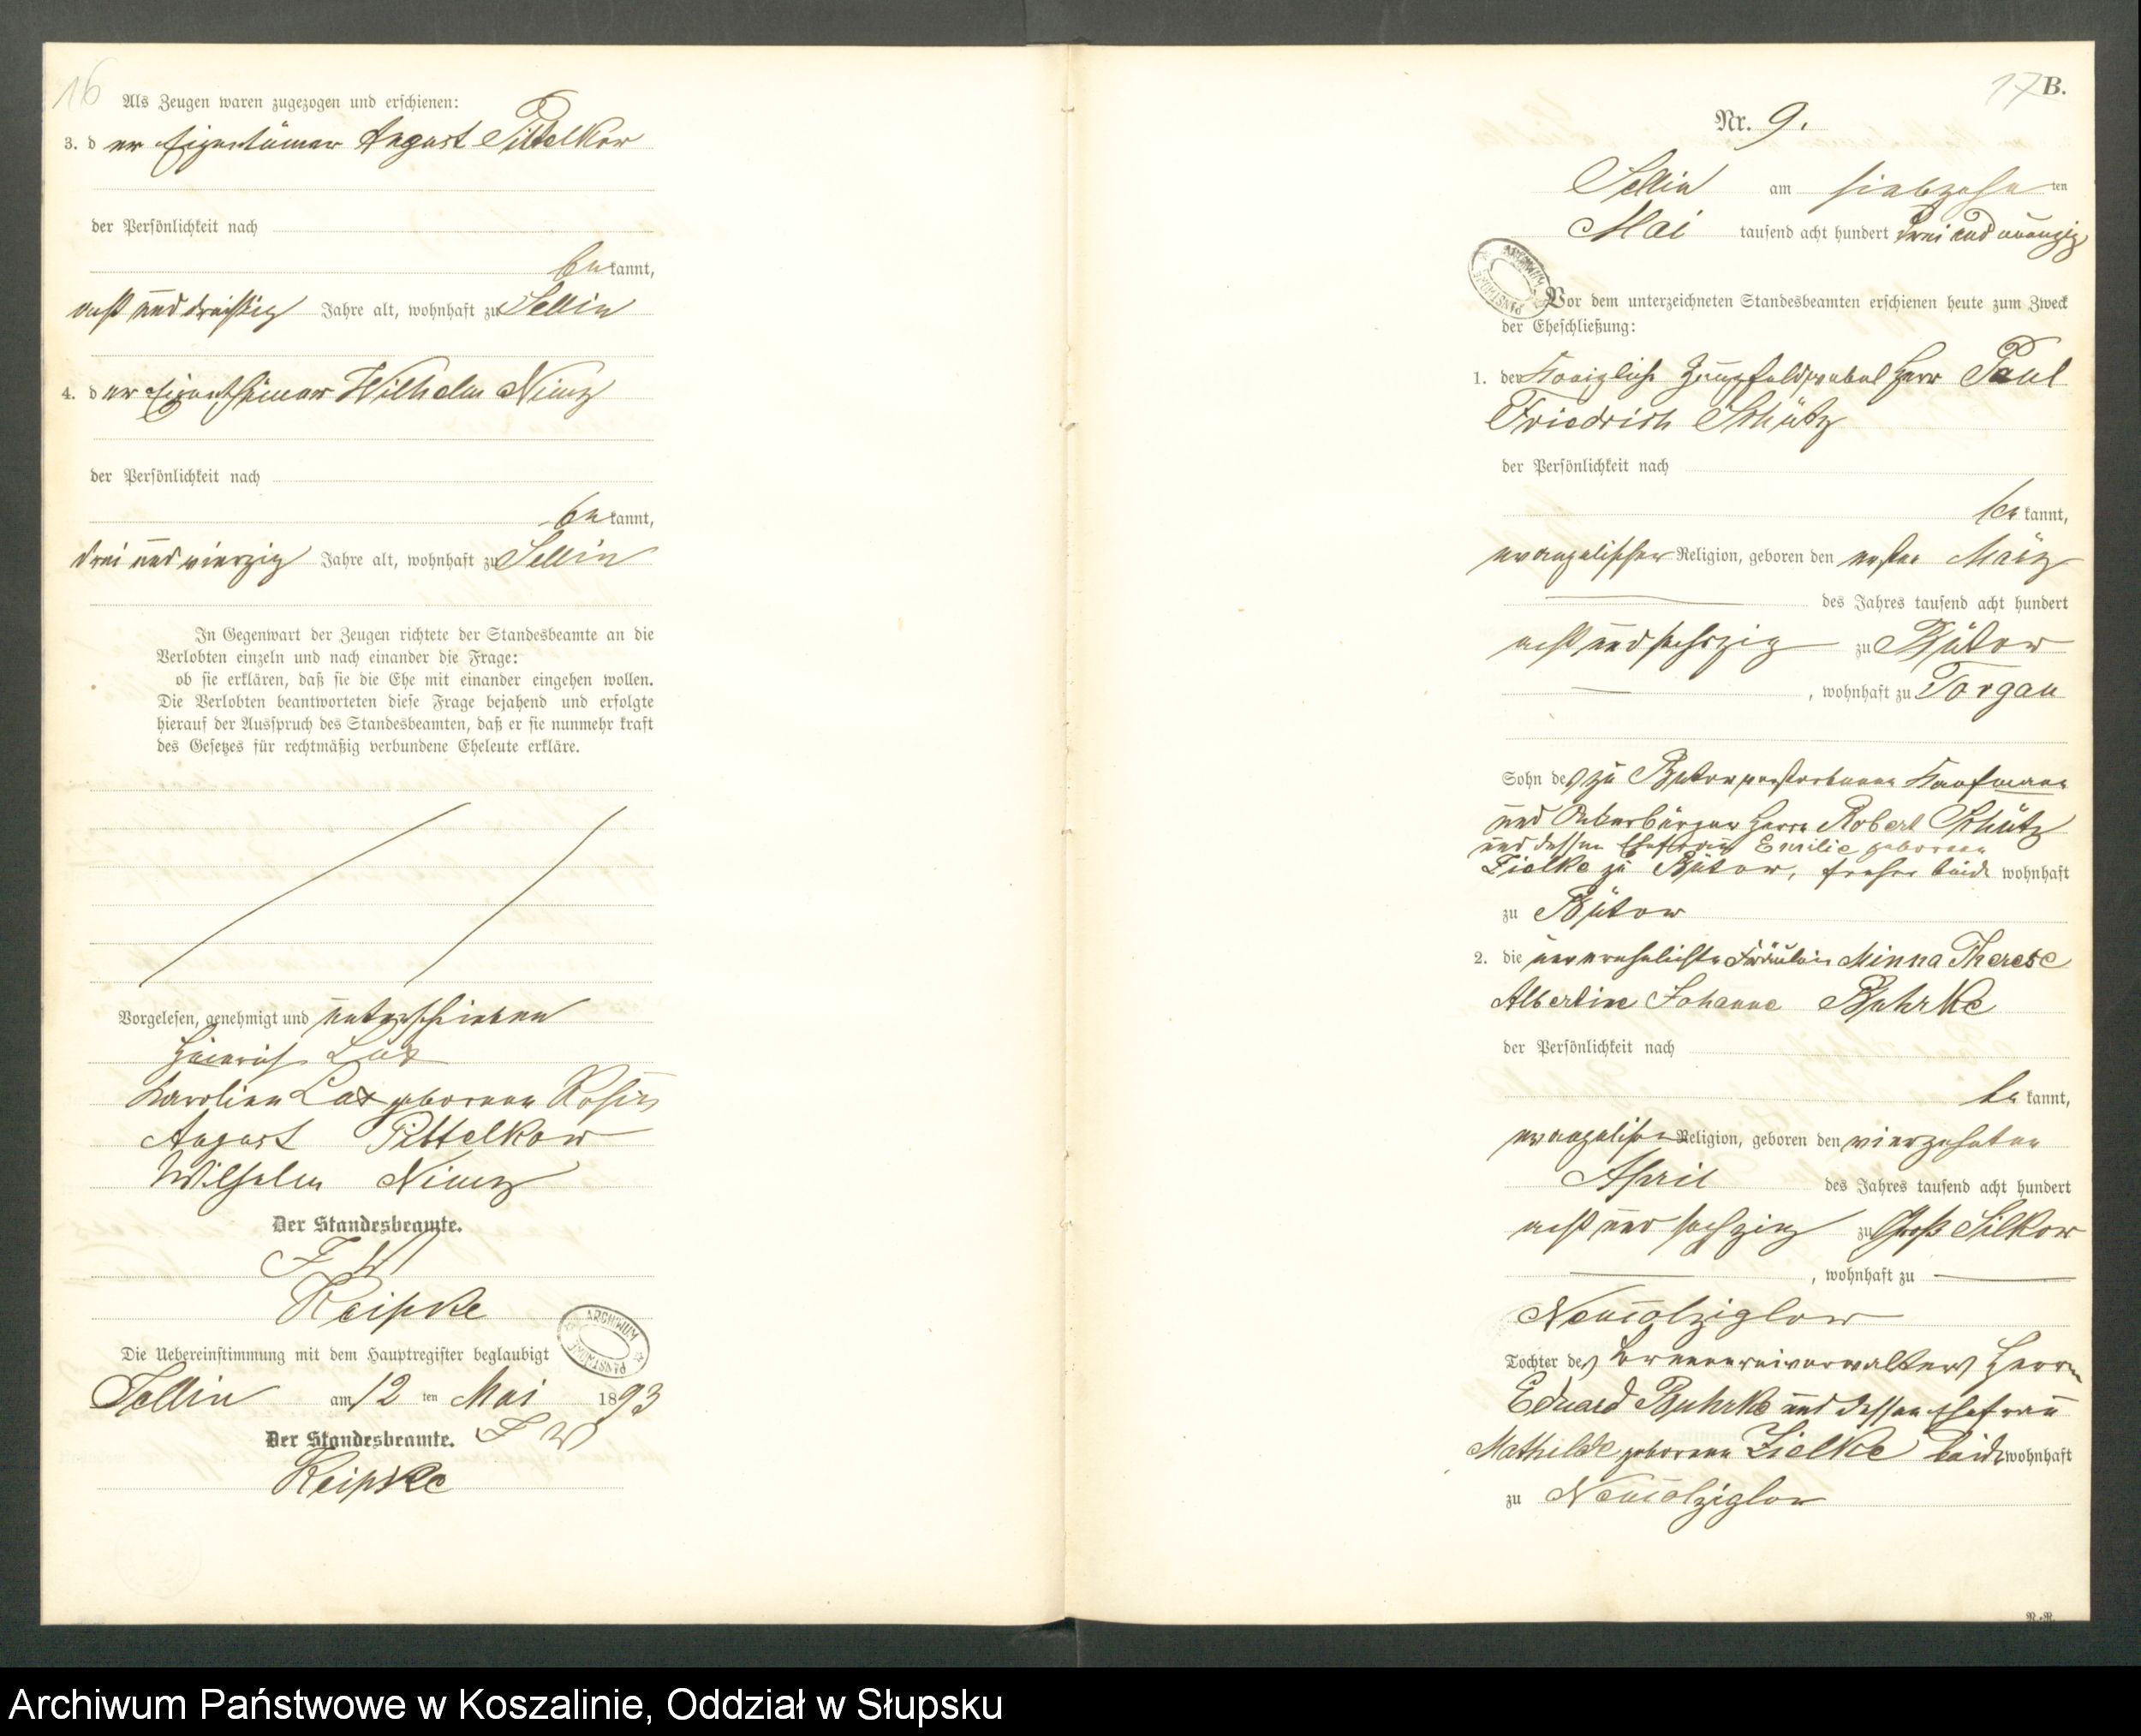 16
Als Zeugen waren zugezogen und erschienen:
3. der Eigentümer August Pittelkow
der Persönlichkeit nach
bekannt,
acht und dreißig Jahre alt, wohnhaft zu Sellin
4. der Eigenthümer Wilhelm Nimz
der Persönlichkeit nach
bekannt,
drei und vierzig Jahre alt, wohnhaft zu Sellin
In Gegenwart der Zeugen richtete der Standesbeamte an die
Verlobten einzeln und nach einander die Frage:
ob sie erklären, daß sie die Ehe mit einander eingehen wollen.
Die Verlobten beantworteten diese Frage bejahend und erfolgte
hierauf der Ausspruch des Standesbeamten, daß er sie nunmehr kraft
des Gesetzes für rechtmäßig verbundene Eheleute erkläre.
Vorgelesen, genehmigt und unterschrieben
Heinrich Lax
Karoline Lax geborene Rosin
August Pittelkow
Wilhelm Nimz
Der Standesbeamte.
F W
Reipke
Die Uebereinstimmung mit dem Hauptregister beglaubigt
ARCHIWUM PAŃSTWOWE
Sellin am 12 ten Mai 1893
Der Standesbeamte. F W
Reipke
17 B.
Nr. 9.
Sellin am siebzehnten
Mai tausend acht hundert drei und neunzig
ARCHIWUM PAŃSTWOWE
Vor dem unterzeichneten Standesbeamten erschienen heute zum Zweck
der Eheschließung:
1. der Königliche Zeugfeldwebel Herr Paul
Friedrich Schütz
der Persönlichkeit nach
bekannt,
evangelischer Religion, geboren den ersten März
des Jahres tausend acht hundert
acht und sechszig zu Bütow
, wohnhaft zu Torgau
Sohn des zu Bütow verstorbenen Kaufmann
und Ackerbürger Herrn Robert Schütz
und dessen Ehefrau Emilie geborenen
Zielke zu Bütow, früher beide wohnhaft
zu Bütow
2. die unverehelichte Fräulein Minna Therese
Albertine Johanne Buhrke
der Persönlichkeit nach
bekannt,
evangelischer Religion, geboren den vierzehnten
April des Jahres tausend acht hundert
acht und sechzig zu Groß Silkow
, wohnhaft zu
Neucolziglow
Tochter des Brennereiverwalters Herrn
Eduard Buhrke und dessen Ehefrau
Mathilde geborene Zielke beide wohnhaft
zu Neucolziglow
N.-N.
Archiwum Państwowe w Koszalinie, Oddział w Słupsku